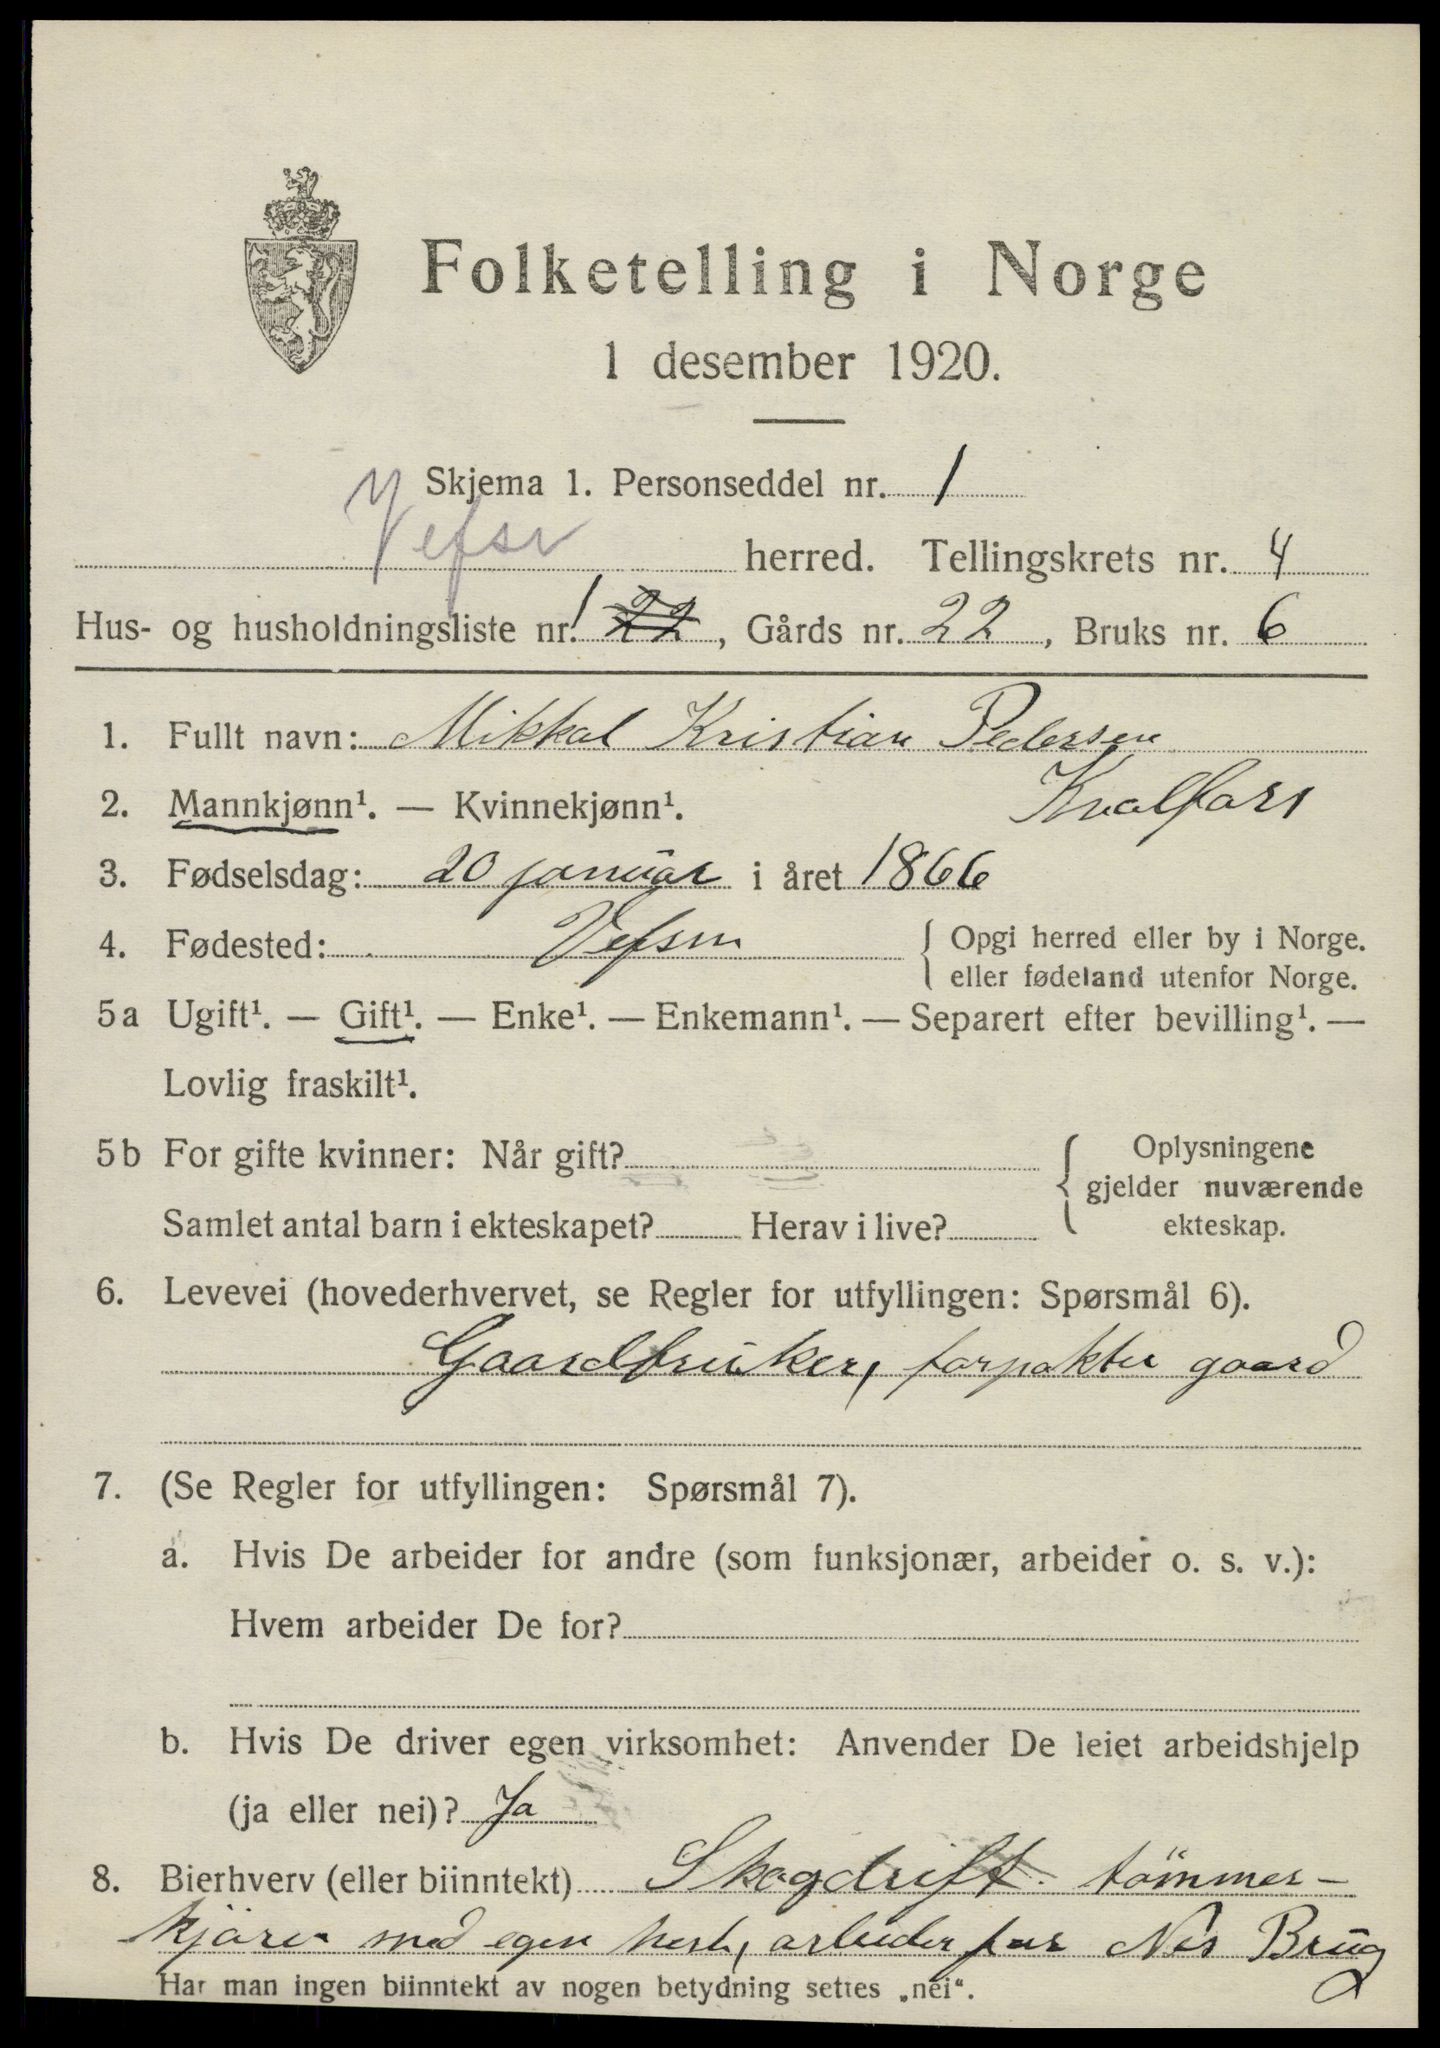 Folketelling i Norge
1 desember 1920.
Skjema 1. Personseddel nr. 1
Vefsn herred. Tellingskrets nr. 4
Hus- og husholdningsliste nr. 1 22, Gårds nr. 22, Bruks nr. 6
1. Fullt navn: Mikkal Kristian Pedersen
Kvalfors
2. Mannkjønn¹. — Kvinnekjønn¹.
3. Fødselsdag: 20 januar i året 1866
4. Fødested: Vefsn { Opgi herred eller by i Norge.
eller fødeland utenfor Norge.
5a Ugift¹. — Gift¹. — Enke¹. — Enkemann¹. — Separert efter bevilling¹. —
Lovlig fraskilt¹.
5b For gifte kvinner: Når gift? { Oplysningene
gjelder nuværende
Samlet antal barn i ekteskapet? Herav i live? ekteskap.
6. Levevei (hovederhvervet, se Regler for utfyllingen: Spørsmål 6).
Gaardbruker, forpakter gaard
7. (Se Regler for utfyllingen: Spørsmål 7).
a. Hvis De arbeider for andre (som funksjonær, arbeider o. s. v.):
Hvem arbeider De for?
b. Hvis De driver egen virksomhet: Anvender De leiet arbeidshjelp
(ja eller nei)? Ja
8. Bierhverv (eller biinntekt) Skogdrift tømmer-
kjører med egen hest, arbeider for Nes Brug
Har man ingen biinntekt av nogen betydning settes „nei“.